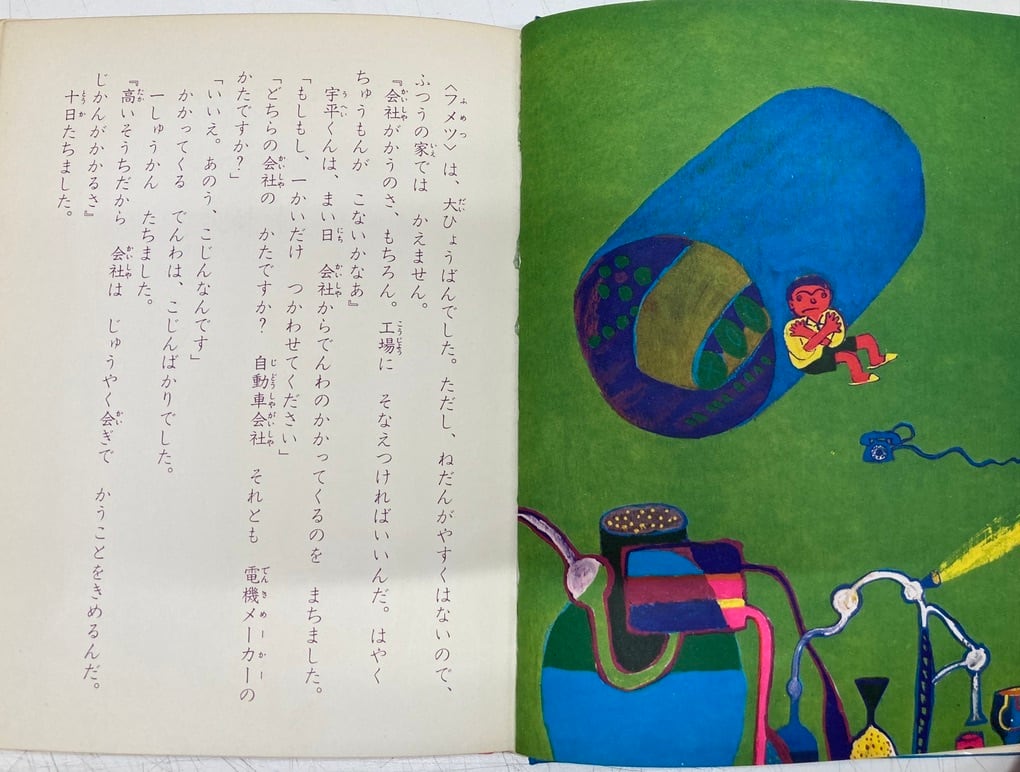 〈フメツ〉は、大ひょうばんでした。ただし、ねだんがやすくはないので、
ふつうの家では かえません。
『会社がかうのさ、もちろん。工場に そなえつければいいんだ。はやく
ちゅうもんが こないかなあ』
宇平くんは、まい日 会社からでんわのかかってくるのを まちました。
「もしもし、一かいだけ つかわせてください」
「どちらの会社の かたですか? 自動車会社 それとも 電機メーカーの
かたですか?」
「いいえ。あのう、こじんなんです」
かかってくる でんわは、こじんばかりでした。
一しゅうかん たちました。
『高いそうちだから 会社は じゅうやく会ぎで かうことをきめるんだ。
じかんがかかるさ』
十日たちました。